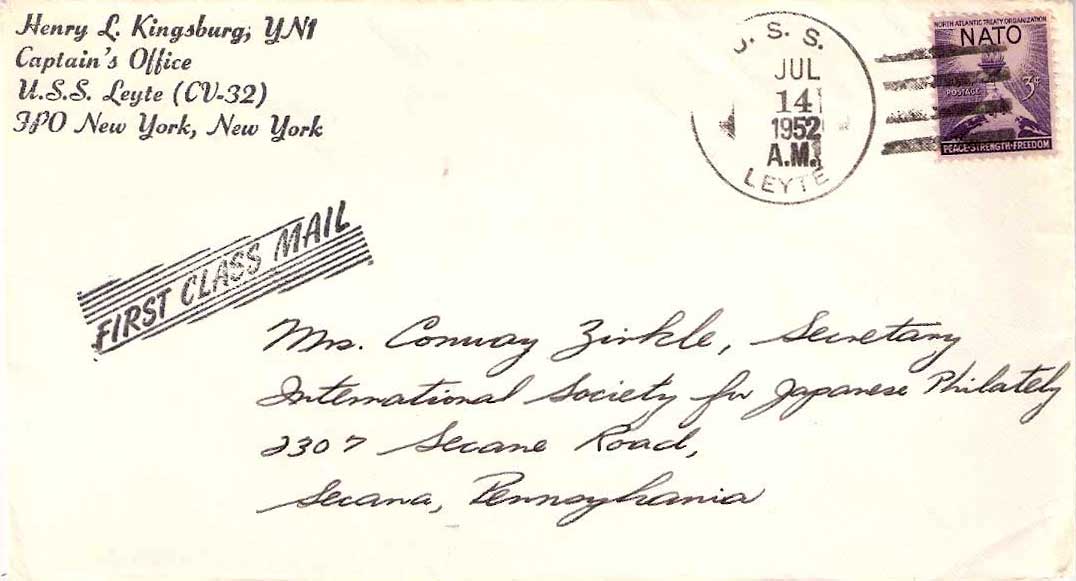 Henry L. Kingsburg, YN1
Captain's Office
U.S.S. Leyte (CV-32)
FPO New York, New York
U. S. S.
JUL
14
1952
A.M.
LEYTE
NORTH ATLANTIC TREATY ORGANIZATION
NATO
POSTAGE
3¢
PEACE-STRENGTH-FREEDOM
FIRST CLASS MAIL
Mrs. Conway Zirkle, Secretary
International Society for Japanese Philately
2307 Secane Road,
Secana, Pennsylvania